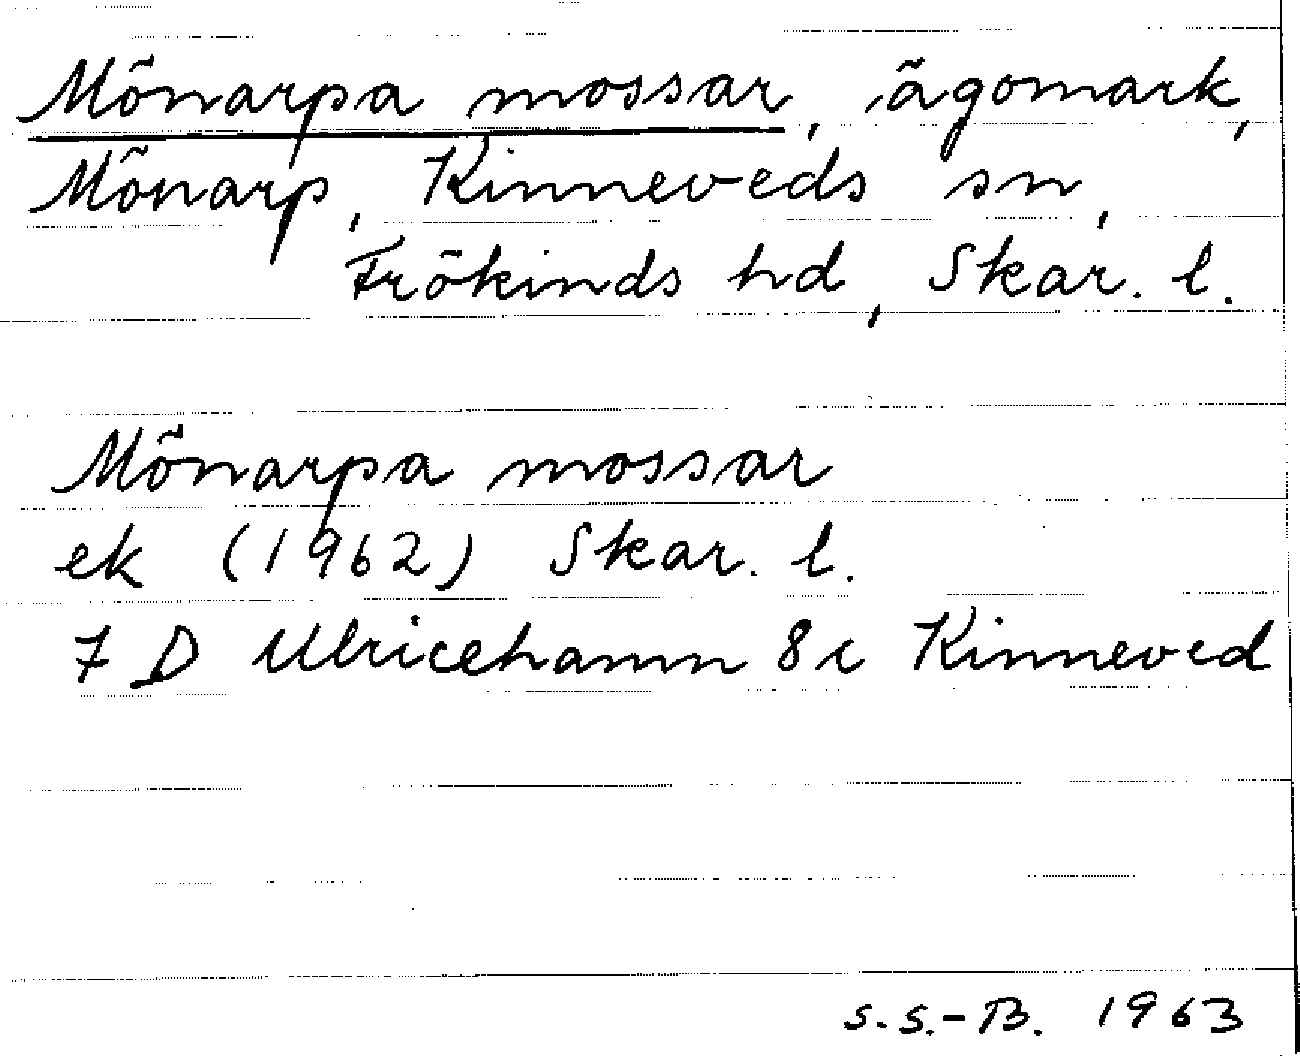 Mönarpa mossar, ägomark,
Mönarp, Kinneveds sn,
Frökinds hd, Skar. l.
Mönarpa mossar
ek (1962) Skar. l.
7 D Ulricehamn 8c Kinneved
S.S.-B. 1963